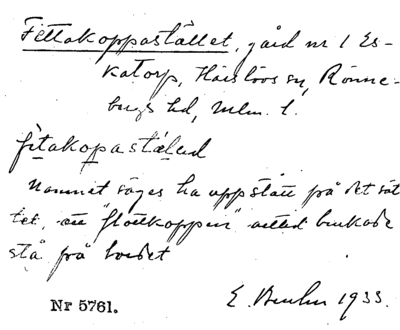 Fettakoppastället, gård nr 1 Es-
katorp, Härslövs sn, Rönne-
bergs hd, Mlm. l.
fìtakopastæled
Namnet säges ha uppstått på det sät
tet, att "flottkoppen" alltid brukade
stå på bordet
Nr 5761. E. 1933.